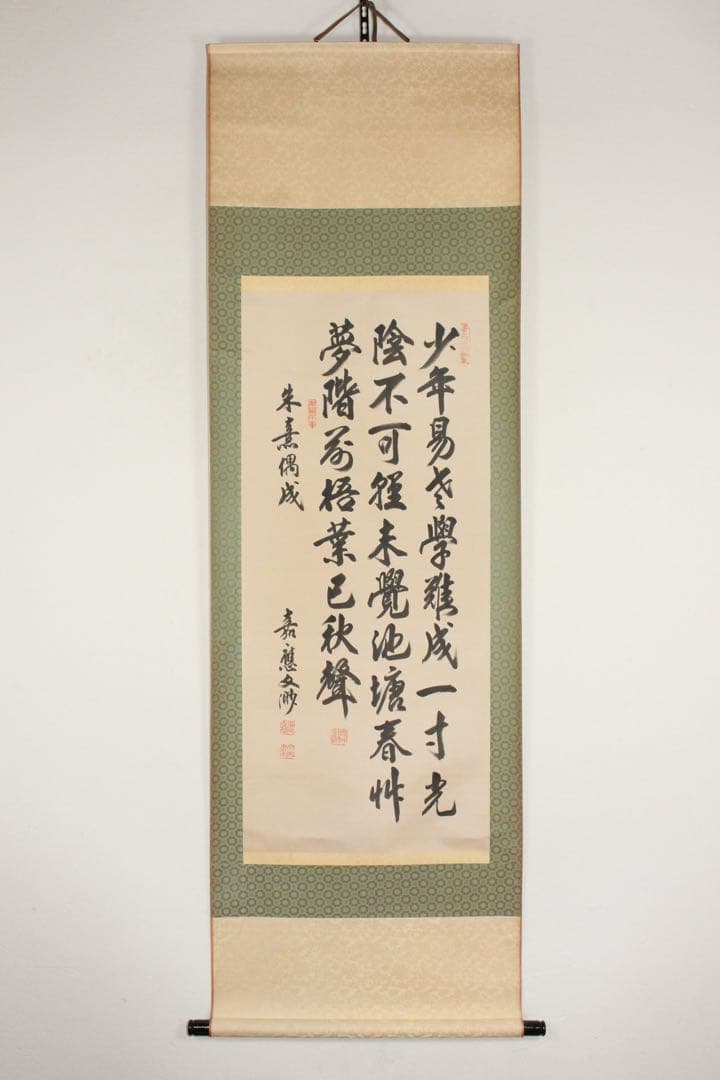 少年易老學難成一寸光
陰不可輕未覺池塘春艸
夢階前梧葉已秋聲
朱熹偶成
嘉應文渺